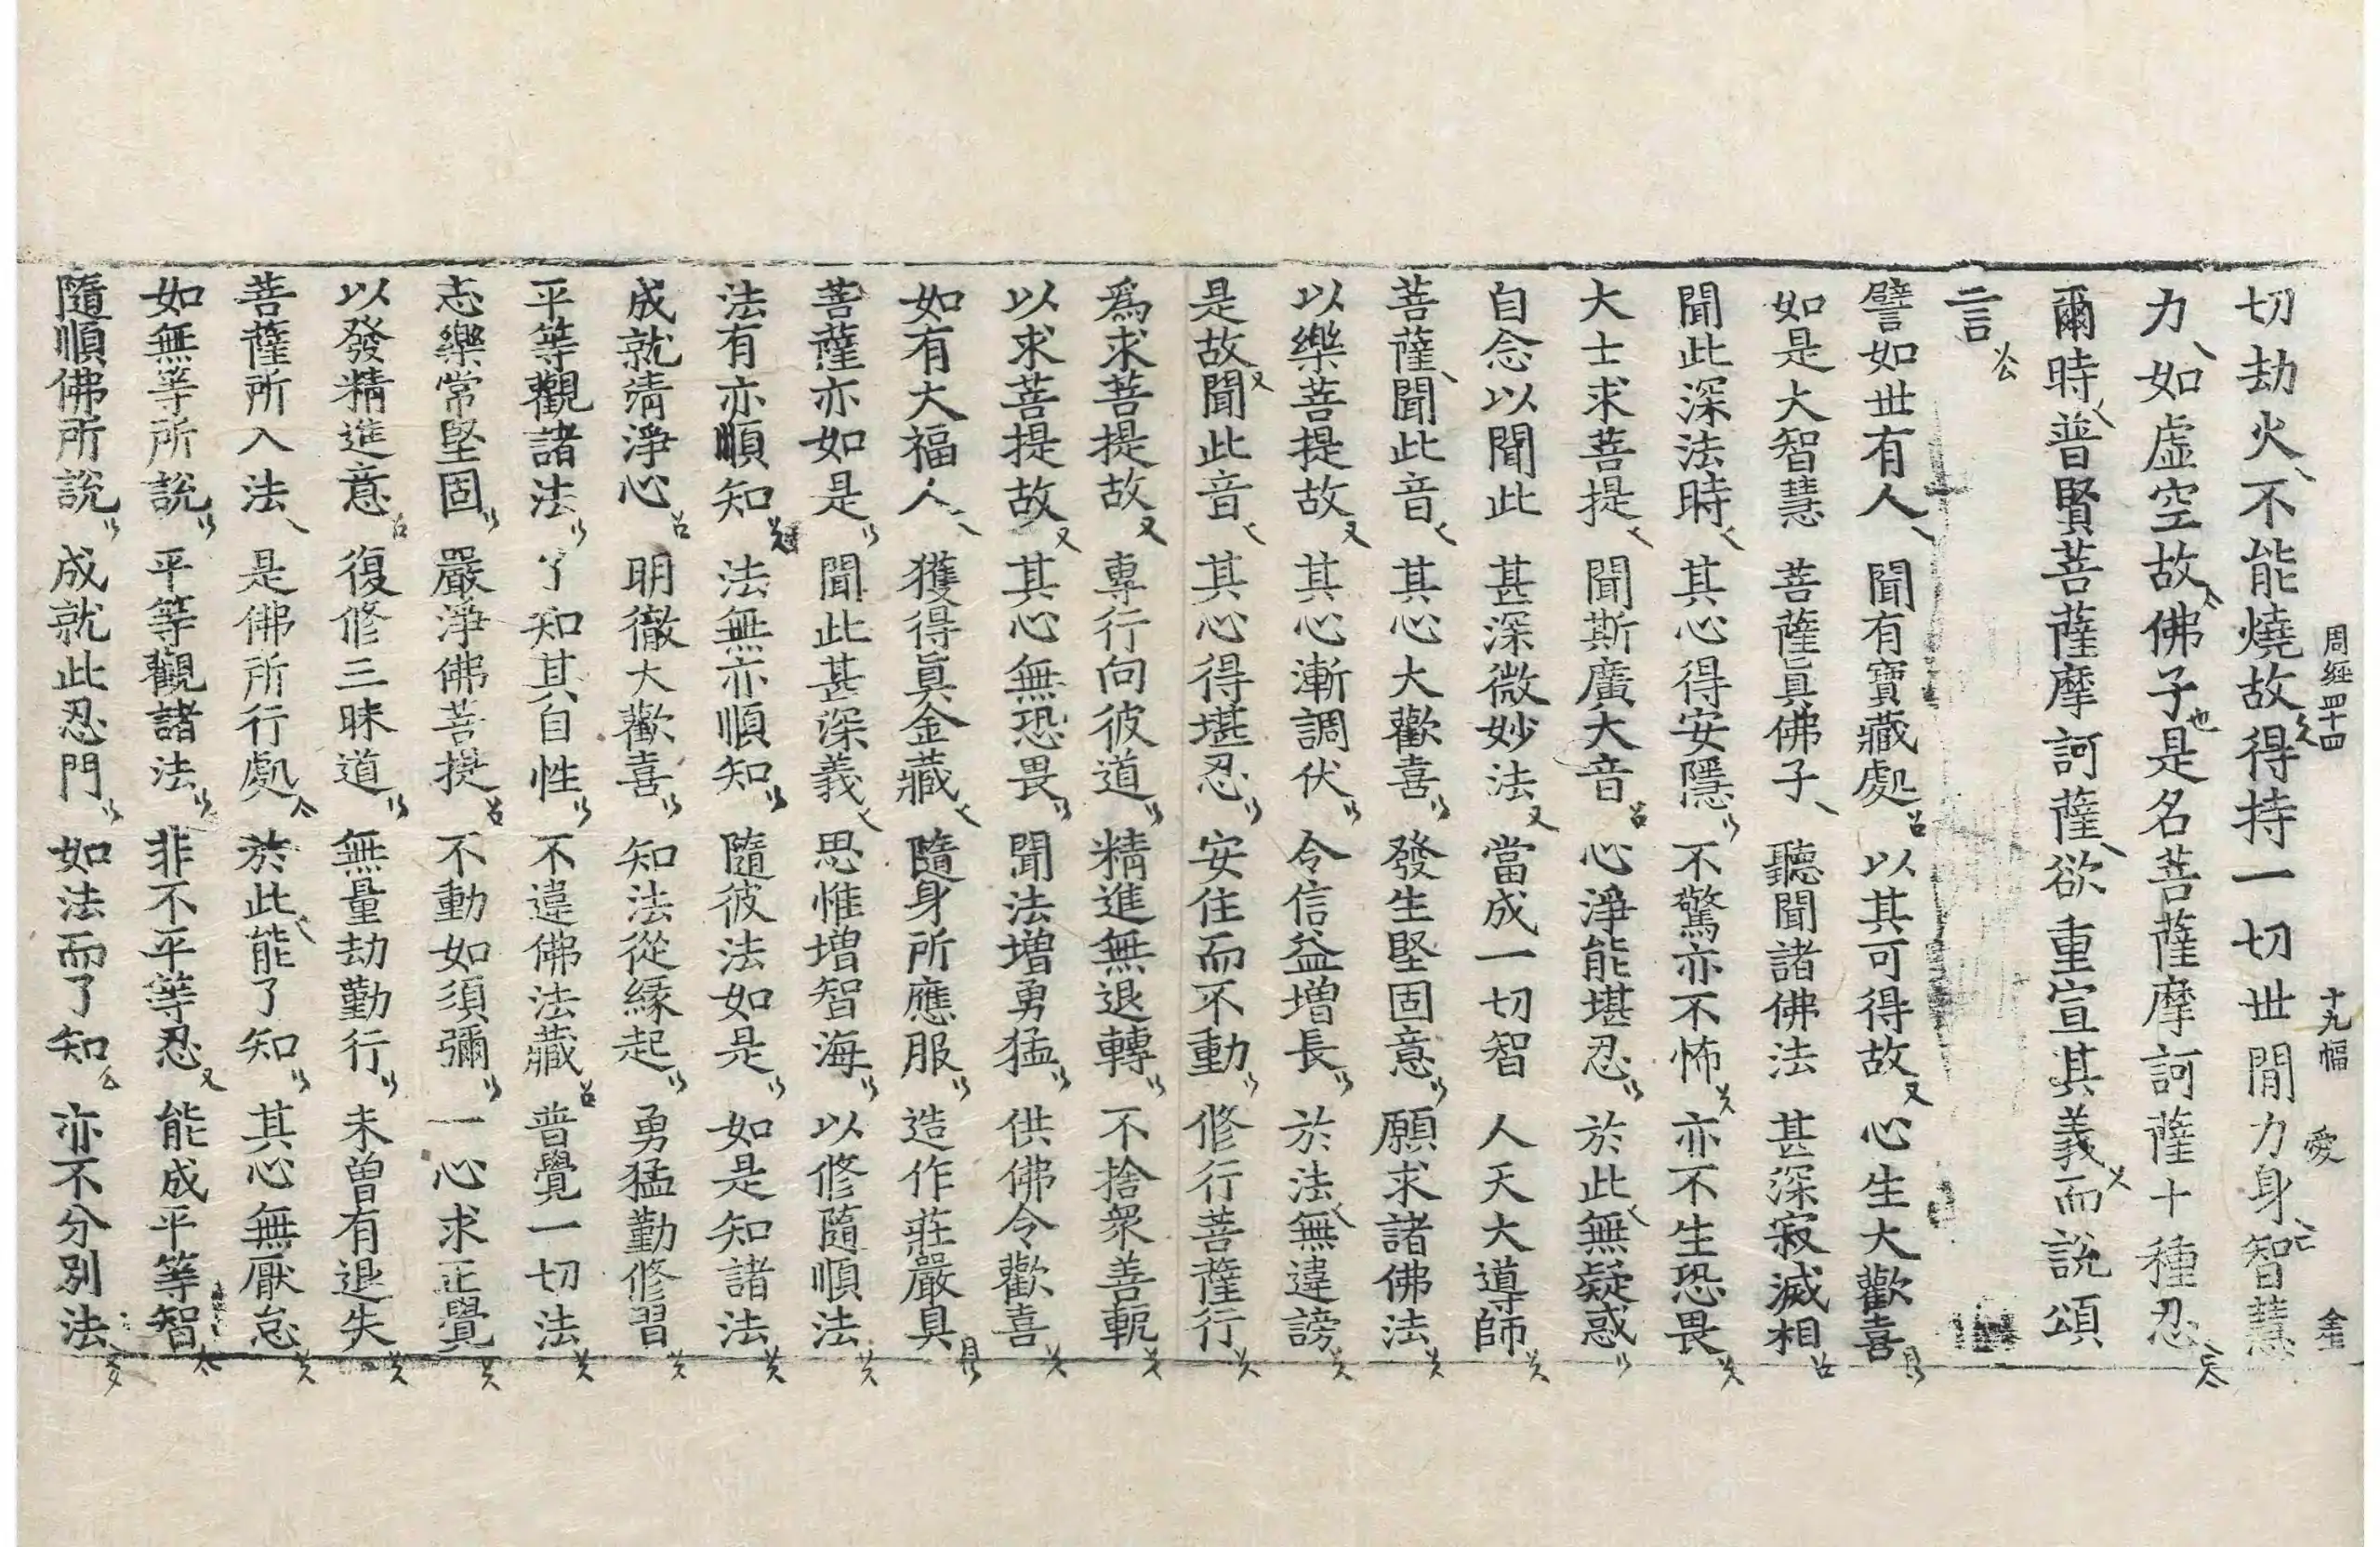 周經四十四 十九幅 愛 全
切劫火不能燒故得持一切世間力身智慧
力如虛空故佛子是名菩薩摩訶薩十種忍
爾時普賢菩薩摩訶薩欲重宣其義而說頌
言
譬如世有人 聞有寶藏處 以其可得故 心生大歡喜
如是大智慧 菩薩真佛子 聽聞諸佛法 甚深寂滅相
聞此深法時 其心得安隱 不驚亦不怖 亦不生恐畏
大士求菩提 聞斯廣大音 心淨能堪忍 於此無疑惑
自念以聞此 甚深微妙法 當成一切智 人天大導師
菩薩聞此音 其心大歡喜 發生堅固意 願求諸佛法
以樂菩提故 其心漸調伏 令信益增長 於法無違謗
是故聞此音 其心得堪忍 安住而不動 修行菩薩行
為求菩提故 專行向彼道 精進無退轉 不捨眾善軛
以求菩提故 其心無恐畏 聞法增勇猛 供佛令歡喜
如有大福人 獲得真金藏 隨身所應服 造作莊嚴具
菩薩亦如是 聞此甚深義 思惟增智海 以修隨順法
法有亦順知 法無亦順知 隨彼法如是 如是知諸法
成就清淨心 明徹大歡喜 知法從緣起 勇猛勤修習
平等觀諸法 了知其自性 不違佛法藏 普覺一切法
志樂常堅固 嚴淨佛菩提 不動如須彌 一心求正覺
以發精進意 復修三昧道 無量劫勤行 未曾有退失
菩薩所入法 是佛所行處 於此能了知 其心無厭怠
如無等所說 平等觀諸法 非不平等忍 能成平等智
隨順佛所說 成就此忍門 如法而了知 亦不分別法